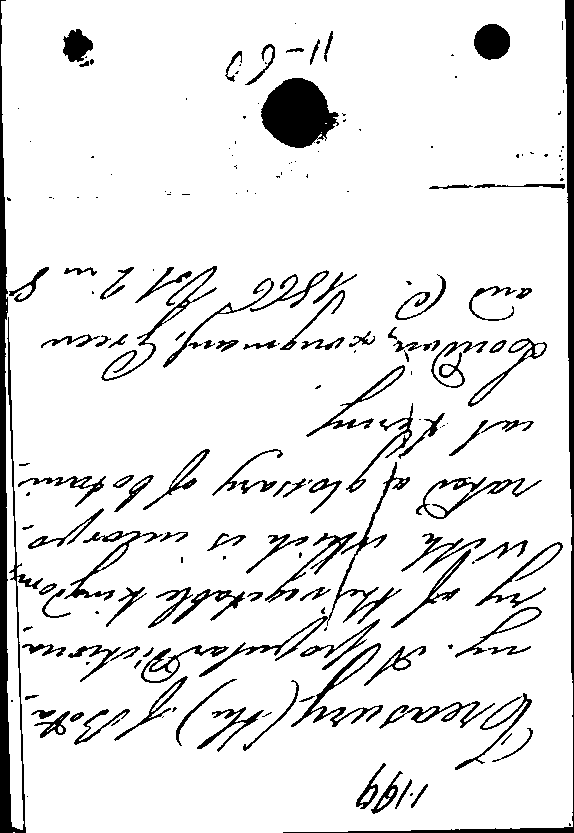 1199
Treasury (the) of Bota-
ny. A popular Dictiona-
ry of the vegetable kingdom,
With which is incorpo-
rated a glossary of botani-
cal terms
London, Longmans, Green
and C. 1866 Vol. 2 in 8
11-60